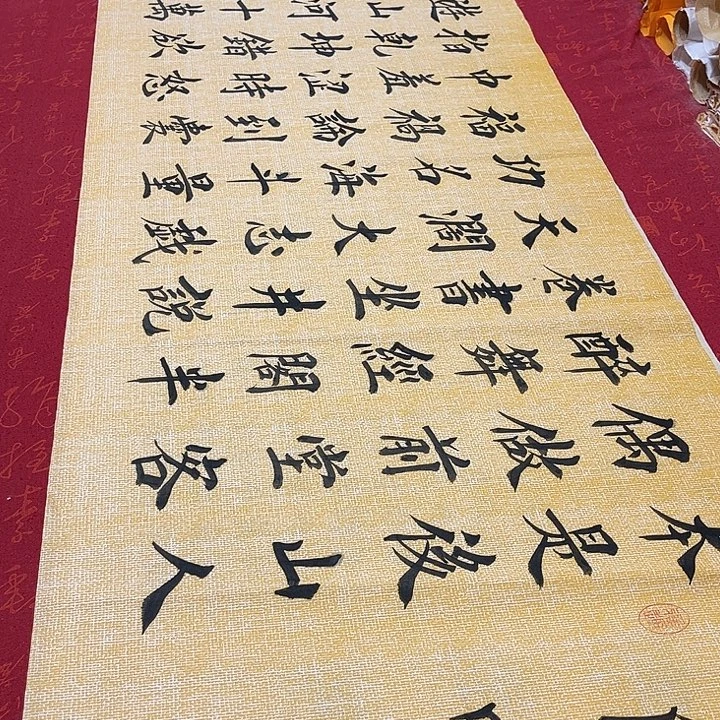 本是後山人
偶做前堂客
醉舞經閣半
卷書坐井說
天闊大志戲
功名海斗量
福禍論到囊
中羞澀時怒
指乾坤錯欲
遊山河十萬